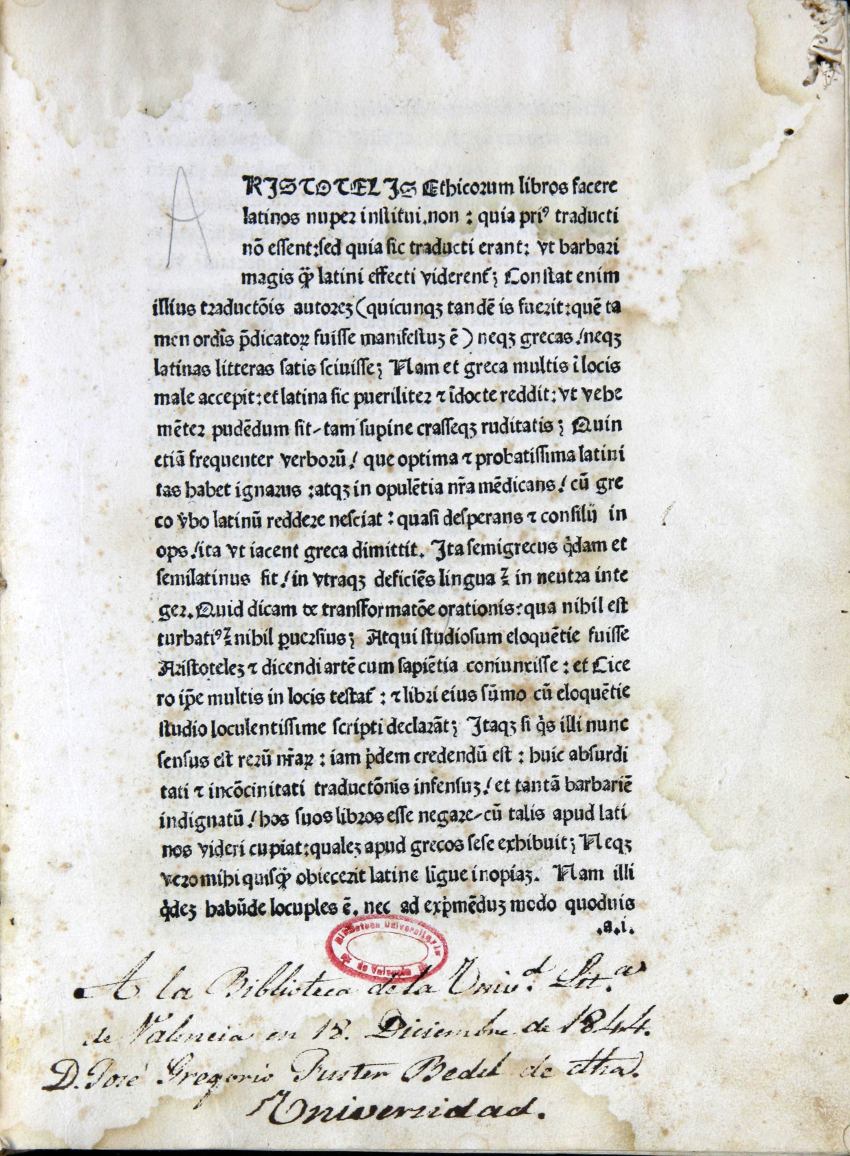 A
RISTOTELIS Ethicorum libros facere
latinos nuper institui.non : quia priꝰ traducti
nõ essent:sed quia sic traducti erant: vt barbari
magis q̃ꝫ latini effecti viderent᷑; Constat enim
illius traductõis autoreꝫ (quicunqꝫ tandē is fuerit:quē ta
men ordis̃ p̃dicatoꝝ fuisse manifestuꝫ ē) neqꝫ grecas / neqꝫ
latinas litteras satis sciuisse; Nam et greca multis ĩ locis
male accepit:et latina sic pueriliter ⁊ ĩdocte reddit:vt vehe
mēter pudēdum sit-tam supine crasseqꝫ ruditatis; Quin
etiã frequenter verborũ / que optima ⁊ probatissima latini
tas habet ignarus :atqꝫ in opulētia nr̃a mēdicans / cũ gre
co v̊bo latinũ reddere nesciat : quasi desperans ⁊ consilij in
ops / ita vt iacent greca dimittit. Ita semigrecus q̇dam et
semilatinus fit / in vtraqꝫ deficiēs lingua ⁊ in neutra inte
ger. Quid dicam de transformatõe orationis:qua nihil est
turbatiꝰ ⁊ nihil ꝑuersius; Atqui studiosum eloquētie fuisse
Aristoteleꝫ ⁊ dicendi artē cum sapiētia coniunxisse : et Cice
ro ip̃e multis in locis testat᷑ : ⁊ libri eius sũmo cũ eloquētie
studio loculentissime scripti declarãt; Itaqꝫ si q̇s illi nunc
sensus est rerũ nr̃aꝝ : iam p̃dem credendũ est : huic absurdi
tati ⁊ incõcinitati traductõnis infensuꝫ / et tantã barbariē
indignatũ / hos suos libros esse negare-cũ talis apud lati
nos videri cupiat:qualeꝫ apud grecos sese exhibuit; Neqꝫ
vero mihi quisq̃ꝫ obiecerit latine lĩgue inopiaꝫ. Nam illi
q̇deꝫ habũde locuples ē. nec ad exp̃mēduꝫ modo quoduis
.a.i.
Biblioteca Universitaria
de Valencia
A la Biblioteca de la Univ.d Lit.a
de Valencia en 18. Diciembre de 1844.
D. José Gregorio Fuster Bedel de dha.
Universidad.